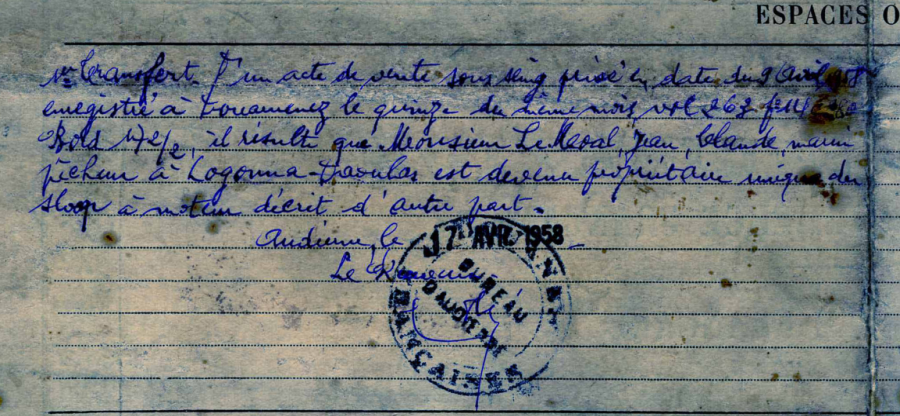 ESPACES O
1er transfert. D'un acte de vente sous seing privé en date du 9 Avril 1958
enregistré à Douarnenez le quinze du même mois vol 262
Bord 172/2, il résulte que Monsieur Jean, Claude, marin
pêcheur à Logonna-Daoulas est devenu propriétaire unique du
sloop à moteur décrit d'autre part.
Audierne, le 17 AVR. 1958
Le
BUREAU
D'AUDIERNE